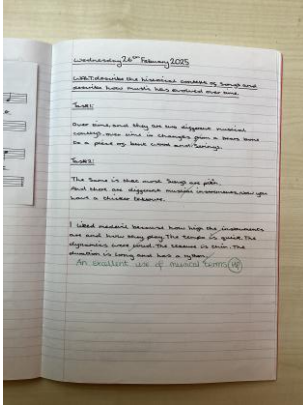 Wednesday 26th February 2025
WALT: describe the historical context of songs and
describe how music has evolved over time.
Task 1:
Over time, and they are two different musical
over time is changes from a brass bone
to a piece of bent wood and strings.
Task 2:
The same is that most songs are
And there are different musical instruments, now you
have a thicker texture.
I liked because how high the instruments
are and how they play. The tempo is quiet. The
dynamics were loud. The texture is thin. The
duration is long and has a
An excellent use of musical terms HP